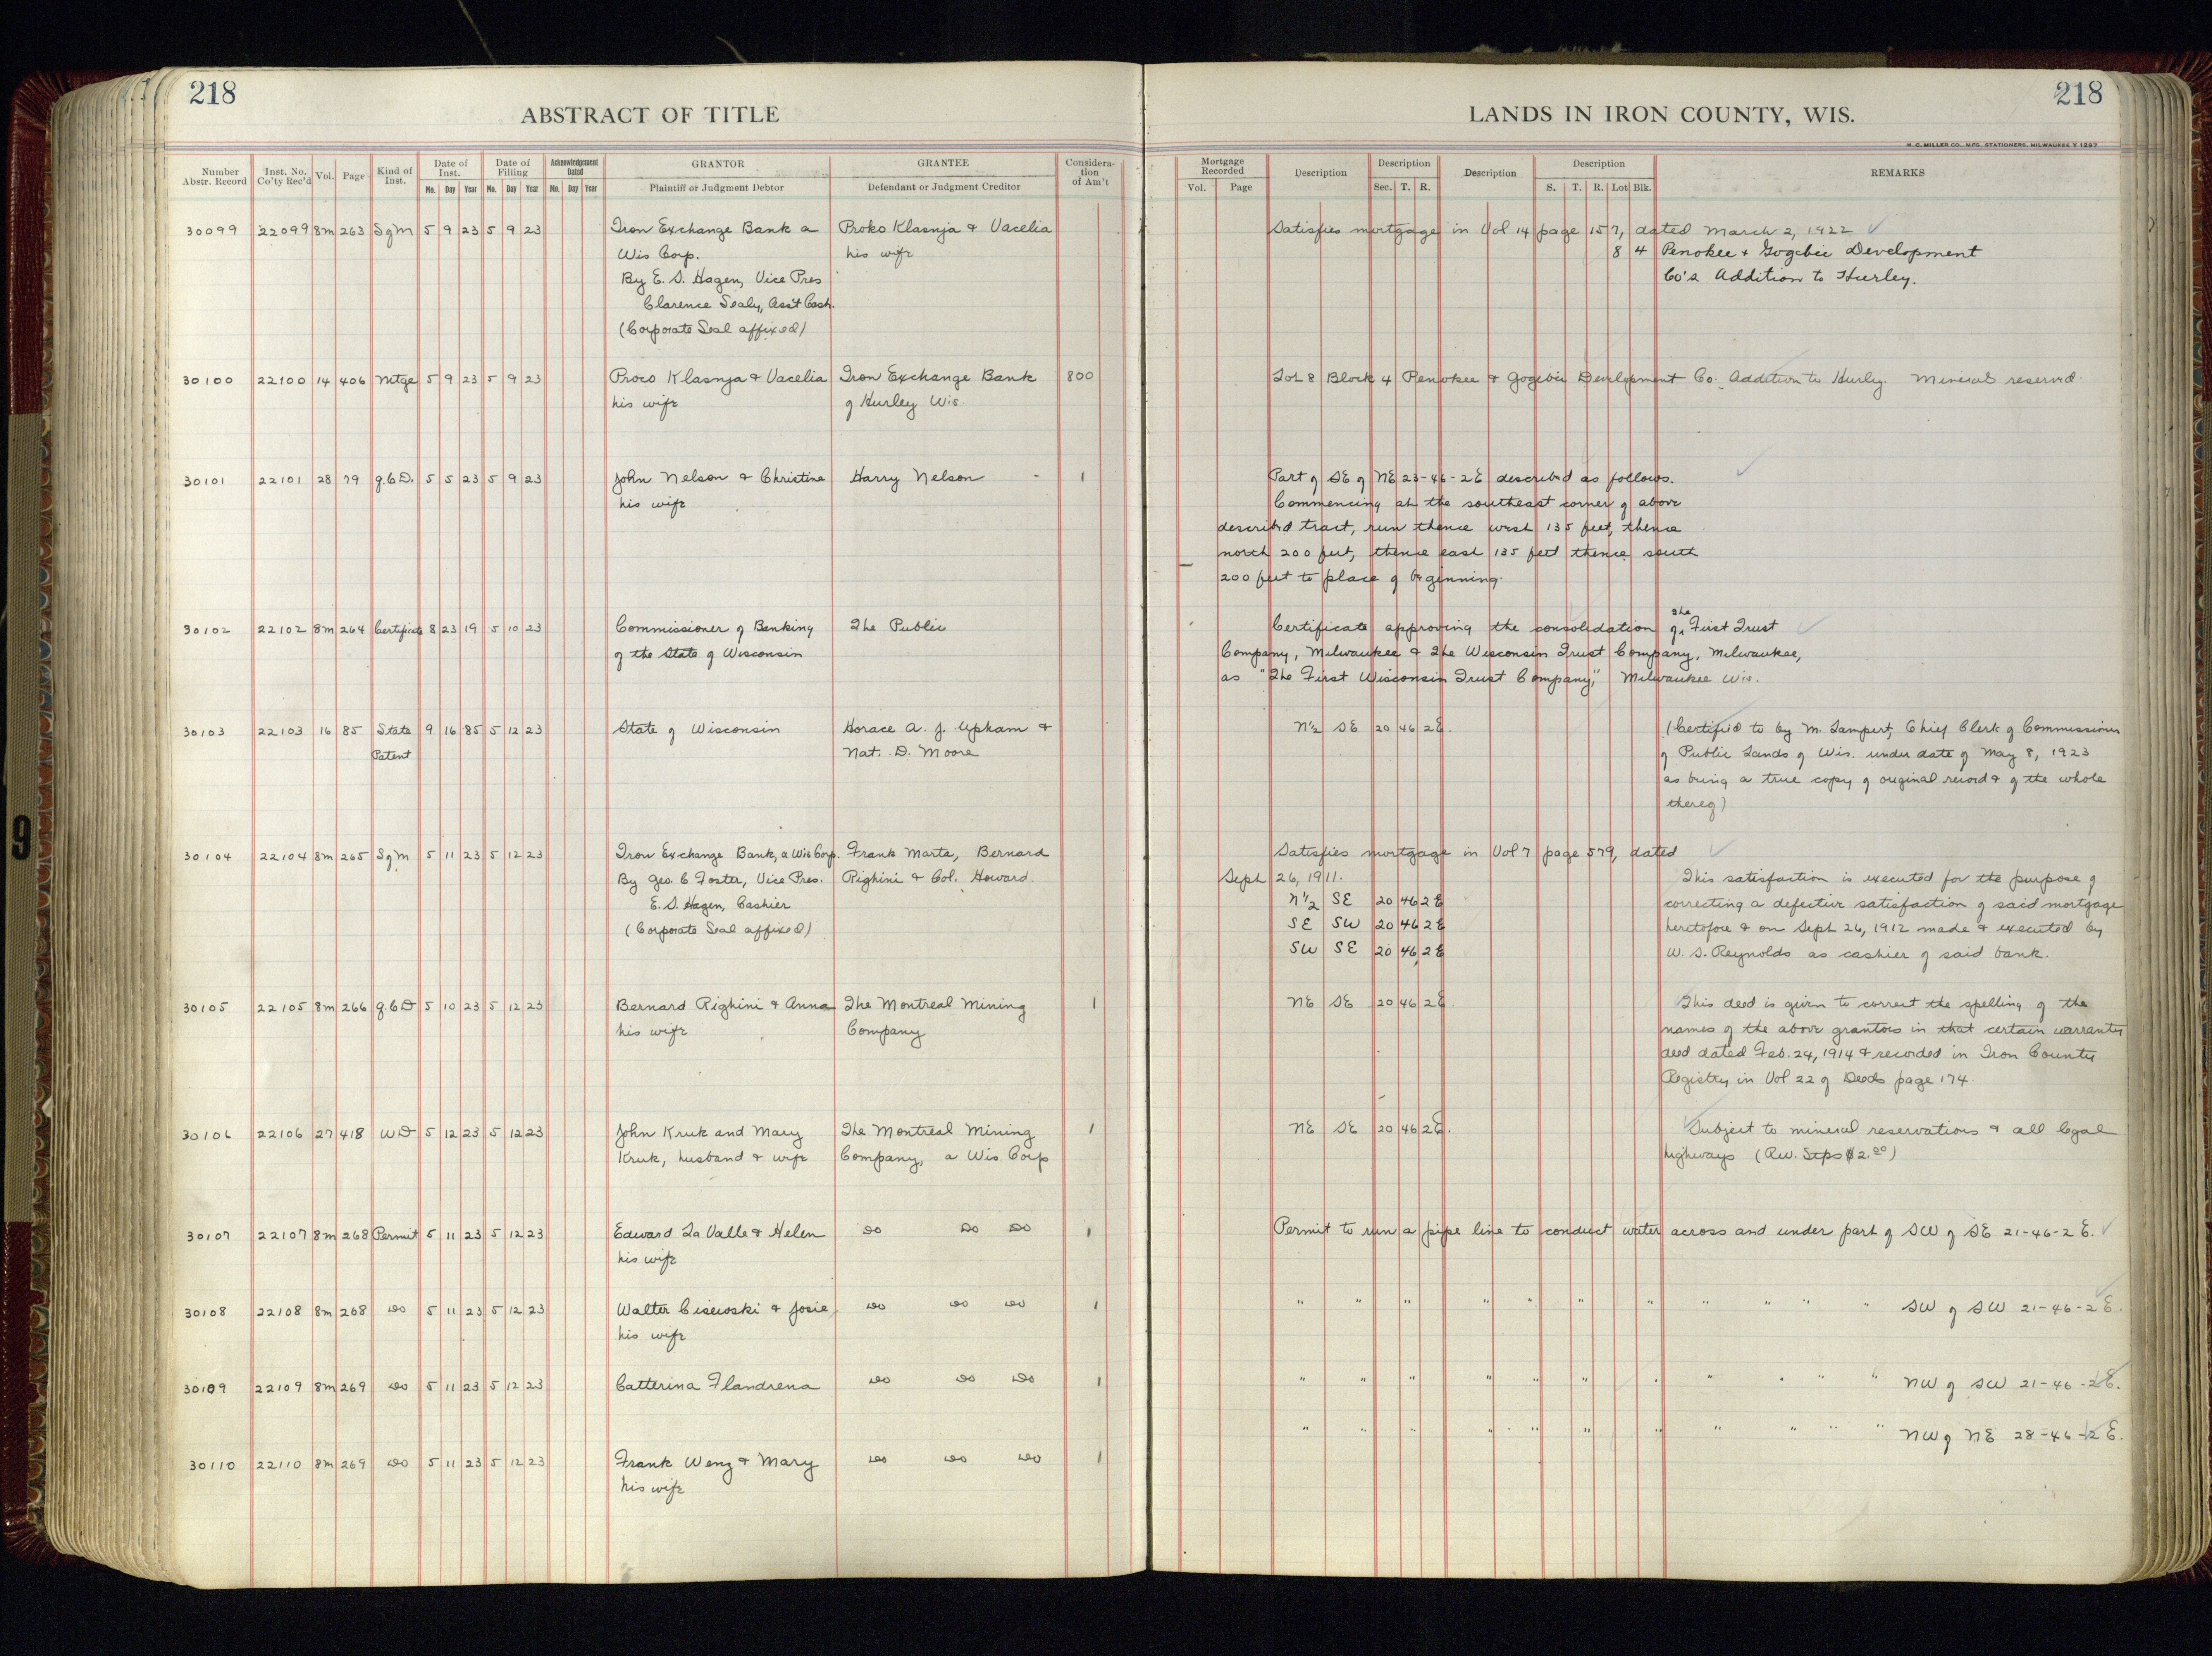 218
218
ABSTRACT OF TITLE
LANDS IN IRON COUNTY, WIS.
H. C. MILLER CO., MFG. STATIONERS, MILWAUKEE
Number Abstr. Record
Inst. No. Co'ty Rec'd
Vol.
Page
Kind of Inst.
Date of Inst.
Mo. Day Year
Date of Filling
Mo. Day Year
Acknowledgement Dated
Mo. Day Year
GRANTOR
Plaintiff or Judgment Debtor
GRANTEE
Defendant or Judgment Creditor
Consideration of Am't
Mortgage Recorded
Vol. Page
Description
Description
Sec. T. R.
Description
Description
S. T. R. Lot Blk.
REMARKS
30099 22099 8m 263 SgM 5 9 23 5 9 23 Iron Exchange Bank a Proko Klasnja & Vacelia Satisfies mortgage in Vol 14 page 157, dated March 2, 1922
Wis Corp. his wife 8 4 Penokee & Gogebic Development
By E. S. Hagen, Vice Pres Co's Addition to Hurley.
Clarence Sealy, Ass't Cash.
(Corporate Seal affixed)
30100 22100 14 406 Mtge 5 9 23 5 9 23 Proco Klasnja & Vacelia Iron Exchange Bank 800 Lot 8 Block 4 Penokee & Gogebic Development Co. Addition to Hurley. Mineral reserved.
his wife of Hurley Wis.
30101 22101 28 79 Q.C.D. 5 5 23 5 9 23 John Nelson & Christine Harry Nelson - 1 Part of SE of NE 23-46-2E described as follows.
his wife Commencing at the southeast corner of above
described tract, run thence west 135 feet, thence
north 200 feet, thence east 135 feet thence south
200 feet to place of beginning.
30102 22102 8m 264 Certificate 8 23 19 5 10 23 Commissioner of Banking The Public Certificate approving the consolidation of The First Trust
of the State of Wisconsin Company, Milwaukee & The Wisconsin Trust Company, Milwaukee,
as "The First Wisconsin Trust Company," Milwaukee Wis.
30103 22103 16 85 State 9 16 85 5 12 23 State of Wisconsin Horace A. J. Upham & N½ SE 20 46 2E. (Certified to by M. Lampert, Chief Clerk of Commissioners
Patent Nat. D. Moore of Public Lands of Wis. under date of May 8, 1923
as being a true copy of original record & of the whole
thereof)
30104 22104 8m 265 SgM 5 11 23 5 12 23 Iron Exchange Bank, a Wis Corp. Frank Marta, Bernard Satisfies mortgage in Vol 7 page 579, dated
By Geo. C Foster, Vice Pres. Righini & Col. Howard. Sept 26, 1911. This satisfaction is executed for the purpose of
E. S. Hagen, Cashier N½ SE 20 46 2E correcting a defective satisfaction of said mortgage
(Corporate Seal affixed) SE SW 20 46 2E heretofore & on Sept 26, 1912 made & executed by
SW SE 20 46 2E W. S. Reynolds as cashier of said bank.
30105 22105 8m 266 Q.C.D 5 10 23 5 12 23 Bernard Righini & Anna The Montreal Mining 1 NE SE 20 46 2E. This deed is given to correct the spelling of the
his wife Company names of the above grantors in that certain warranty
deed dated Feb. 24, 1914 & recorded in Iron County
Registry in Vol 22 of Deeds page 174.
30106 22106 27 418 WD 5 12 23 5 12 23 John Kruk and Mary The Montreal Mining 1 NE SE 20 46 2E. Subject to mineral reservations & all legal
Kruk, husband & wife Company, a Wis. Corp highways (Rev. Stps $2.00)
30107 22107 8m 268 Permit 5 11 23 5 12 23 Edward La Valle & Helen Do Do Do 1 Permit to run a pipe line to conduct water across and under part of SW of SE 21-46-2E.
his wife
30108 22108 8m 268 Do 5 11 23 5 12 23 Walter Cisewski & Josie, Do Do Do 1 " " " " " " " " " " " SW of SW 21-46-2E.
his wife
30109 22109 8m 269 Do 5 11 23 5 12 23 Catterina Flandrena Do Do Do 1 " " " " " " " " " " " NW of SW 21-46-2E.
" " " " " " " " " " " NW of NE 28-46-2E.
30110 22110 8m 269 Do 5 11 23 5 12 23 Frank Weng & Mary Do Do Do 1
his wife
9